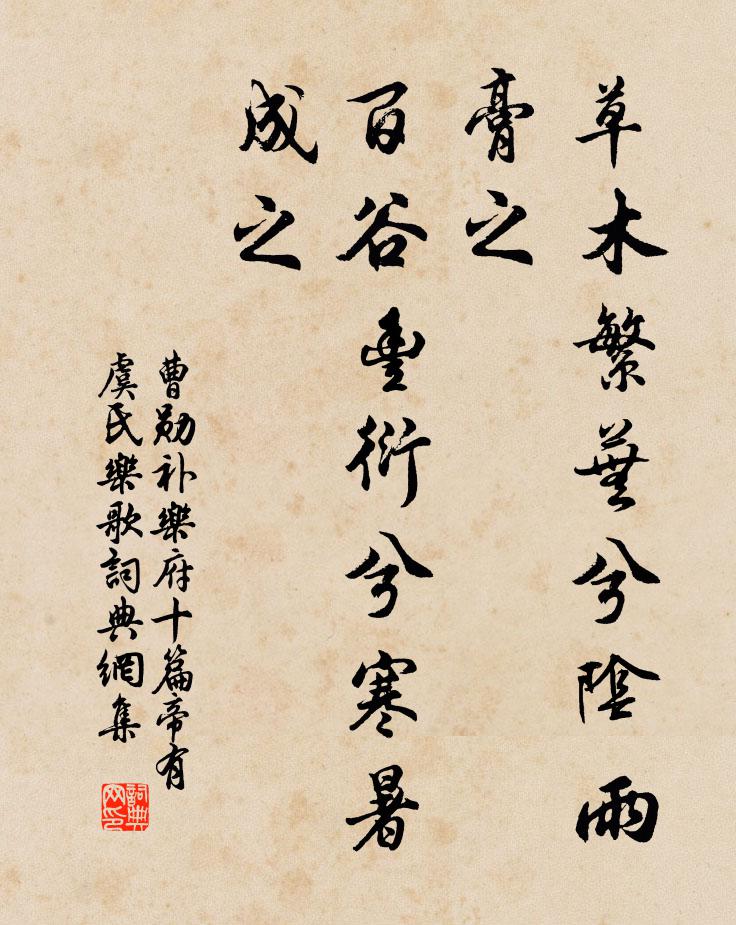 草木繁蕪兮陰雨
膏之
百谷豊衍兮寒暑
成之
曹勛补樂府十篇帝有
虞氏樂歌詞典網集
詞典
网印